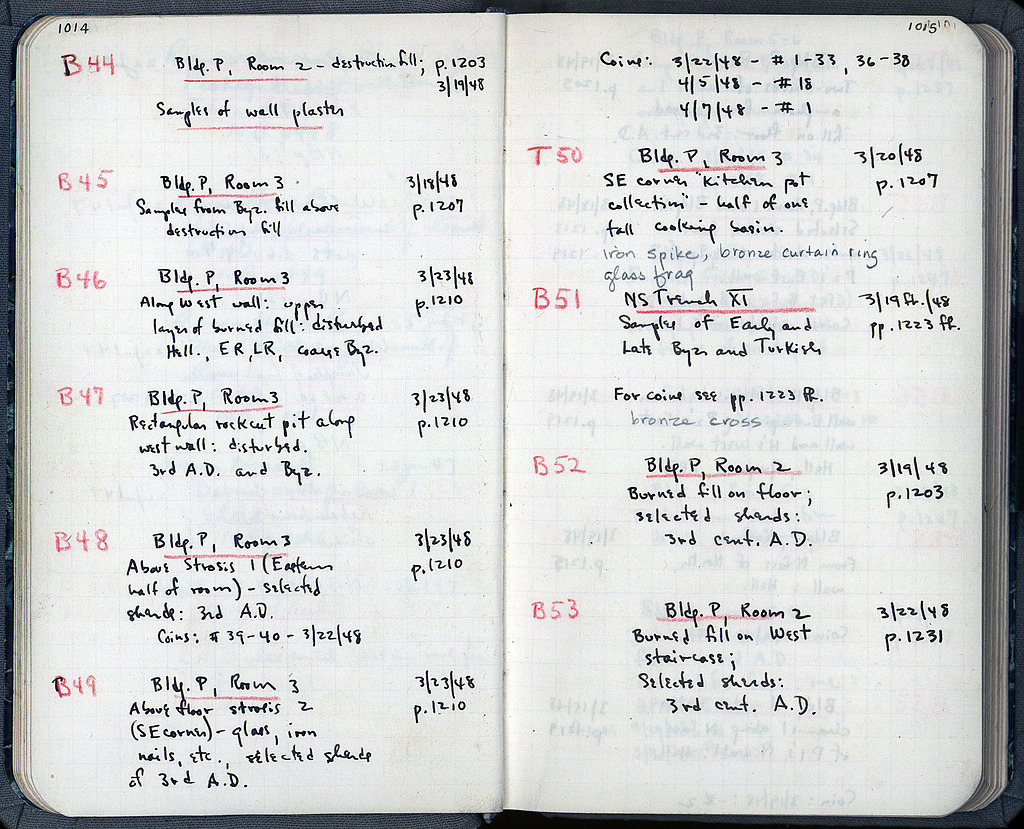 1014
B44 Bldg. P, Room 2 - destruction fill; p.1203
3/19/48
Samples of wall plaster
B45 Bldg. P, Room 3 3/18/48
Samples from Byz. fill above p.1207
destruction fill
B46 Bldg. P, Room 3 3/23/48
Along West wall: upper p.1210
layer of burned fill: disturbed
Hell., ER, LR, coarse Byz.
B47 Bldg. P, Room 3 3/23/48
Rectangular rockcut pit along p.1210
west wall: disturbed.
3rd A.D. and Byz.
B48 Bldg. P, Room 3 3/23/48
Above Strosis 1 (Eastern p.1210
half of room) - selected
sherds: 3rd A.D.
Coins: # 39-40 - 3/22/48
B49 Bldg. P, Room 3 3/23/48
Above floor strosis 2 p.1210
(SE corner) - glass, iron
nails, etc., selected sherds
of 3rd A.D.
1015
Coins: 3/22/48 - # 1-33, 36-38
4/5/48 - # 18
4/7/48 - # 1
T50 Bldg. P, Room 3 3/20/48
SE corner "Kitchen pot p.1207
collection" - half of one
tall cooking basin.
iron spike, bronze curtain ring
glass frag
B51 NS Trench XI 3/19 ff./48
Samples of Early and pp.1223 ff.
Late Byz. and Turkish
For coins see pp. 1223 ff.
bronze cross
B52 Bldg. P, Room 2 3/19/48
Burned fill on floor; p.1203
selected sherds:
3rd cent. A.D.
B53 Bldg. P, Room 2 3/22/48
Burned fill on West p.1231
staircase;
Selected sherds:
3rd cent. A.D.